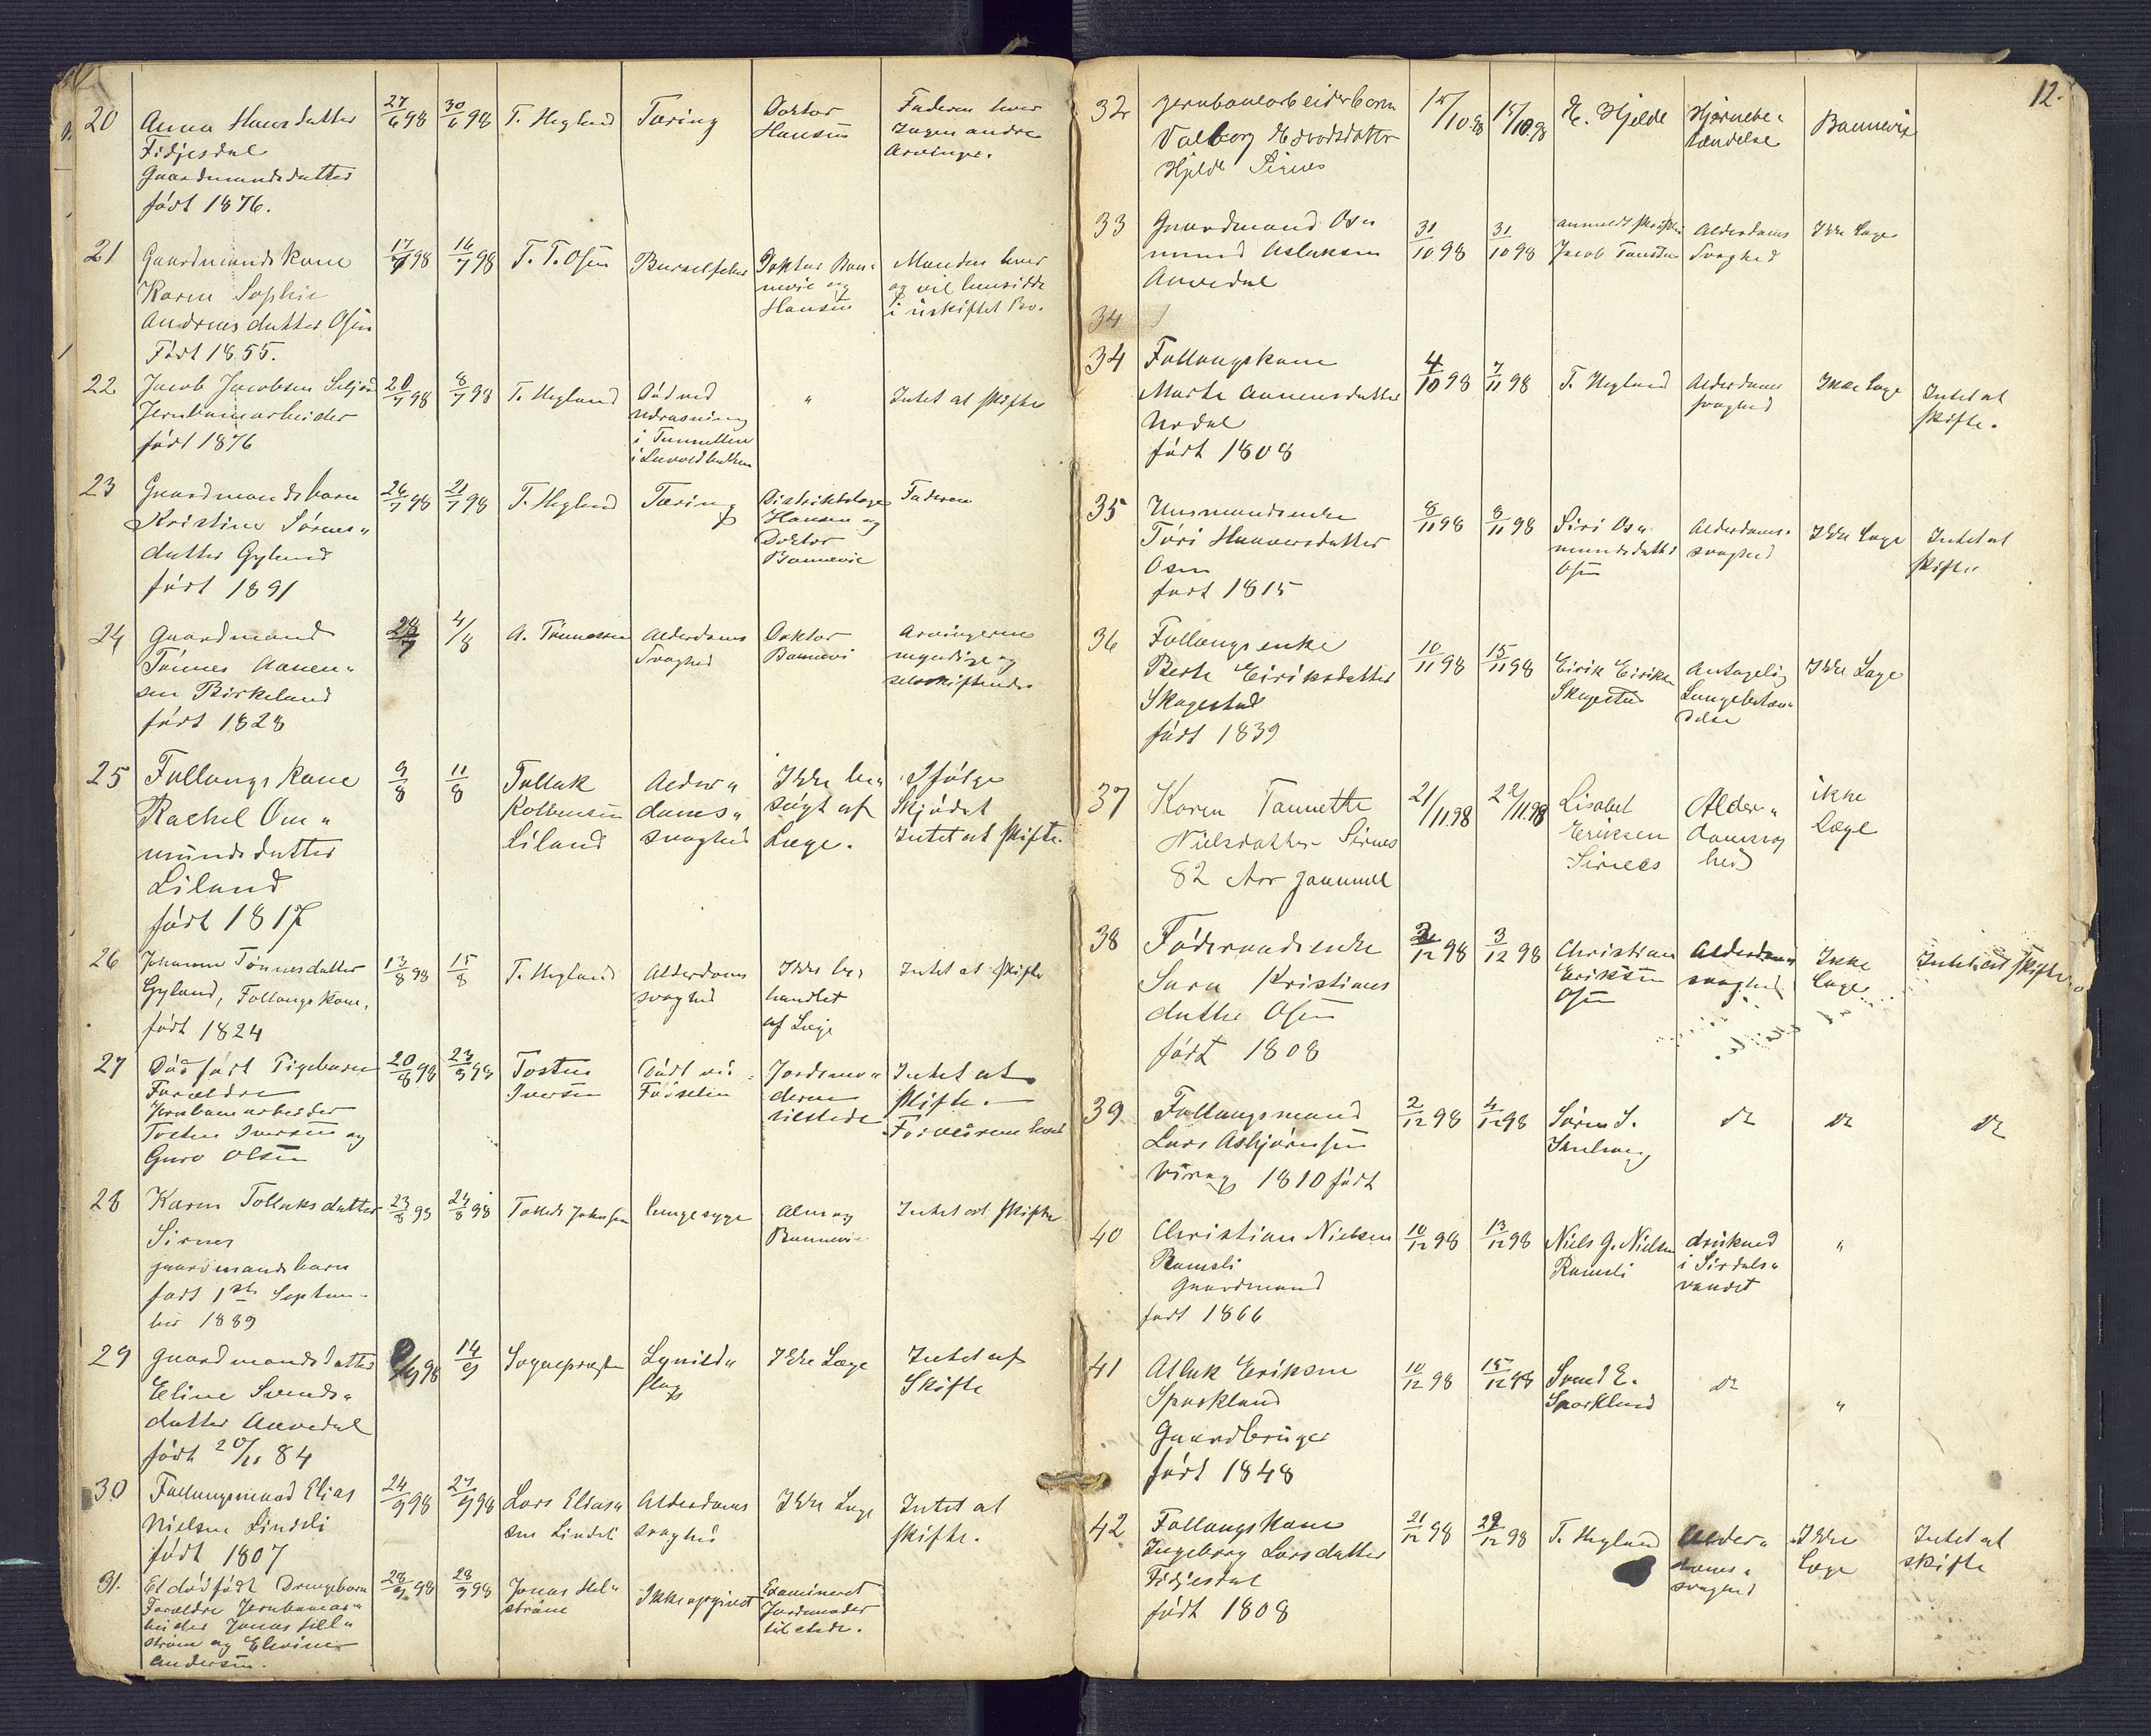 20
Anna Hansdatter
Fidjesdal
Gaardmandsdatter
født 1876.
27/6 98
30/6 98
T. Hegland
Tæring
Doktor
Hansen
Faderen lever
Ingen andre
Arvinger.
21
Gaardmandskone
Karen Sophie
Andreasdatter Osen
Født 1855.
98
16/7 98
T. T. Osen
Barselfeber
Doktor Ban-
nevie og
Hansen
Manden lever
og vil hensidde
i uskiftet Bo.
22
Jacob Jacobsen
Jernbanearbeider
født 1876
98
8/7 98
T. Hegland
Død ved
Udrasning
i Tunnellen
i
"
Intet at skifte
23
Gaardmandsbarn
Kristine Sørens-
datter Gyland
født 1891
26/7 98
21/7 98
T. Hegland
Tæring
Distriktslæge
Hansen og
Doktor
Bannevie
Faderen
24
Gaardmand
Tønnes Aanen-
sen Birkeland
født 1828
4/8
A. Tønnessen
Alderdoms
Svaghed
Doktor
Bannevi
Arvingerne
myndige og
selvskiftende
25
Follaugskone
Rachel Om-
mundsdatter
Liland
født 1817
9/8
11/8
Tollak
Kolbensen
Liland
Alder-
doms-
svaghed
Ikke be-
søgt af
Læge.
Ifølge
Skjødet
Intet at skifte.
26
Johanne Tønnesdatter
Gyland, Follaugskone,
født 1824
13/8 98
15/8
T. Hegland
Alderdoms
svaghed
Ikke be-
handlet
af Læge
Intet at skifte
27
Dødfødt Pigebarn
Forældre
Jernbanearbeider
Tosten Iversen og
Guro Olsen
20/8 98
98
Tosten
Iversen
Født ved
Fødselen
Jordemo-
deren
tilstede
Intet at
skifte. —
28
Karen Tollaksdatter
Sirnes
gaardmandsbarn
født 1ste Septem-
ber 1889
23/8 98
24/8 98
Tollak Johnsen
lungesyge
Alm og
Bannevie
Intet at skifte
29
Gaardmandsdatter
Eline Svends-
datter Aavedal
født 84
98
14/9
Sognepræsten
Lynild-
slag
Ikke Læge
Intet at
Skifte
30
Follaugsmand Elias
Nielsen Lindeli
født 1807
24/9 98
27/9 98
Lars Elias-
sen Lindeli
Alderdoms
svaghed
Ikke Læge
Intet at
skifte.
31.
Et dødfødt Drengebarn
Forældre Jernbanear-
beider Jonas Hell-
strøm og
Andersen.
28/9 98
28/9 98
Jonas Hel-
strøm
Ikke opgivet
Examineret
Jordemoder
tilstede.
12.
32
Jernbanearbeiderbarn
Valborg Edvardsdatter
Hjelde Sirnes
10.98
10.98
E. Hjelde
Hjernebe-
tændelse
Bannevie
33
Gaardmand Os-
mund Aslaksen
Aavedal
31/10 98
31/10 98
anmeldt
Jacob
Alderdoms
Svaghed
Ikke Læge
34
34
Follaugskone
Marte Aanensdatter
Urdal
født 1808
4/10 98
7/11 98
T. Hegland
Alderdoms
svaghed
Ikke Læge
Intet at
skifte.
35
Husmandsenke
Tøri Haaversdatter
Osen
født 1815
8/11 98
8/11 98
Siri Os-
mundsdatter
Osen
Alderdoms-
svaghed
Ikke Læge
Intet at
skifte
36
Follaugsenke
Berte Eiriksdatter
Skagestad
født 1839
10/11 98
15/11 98
Eirik Eiriksen
Skagestad
Antagelig
Lungebetæn-
delse
Ikke Læge
37
Karen Tannette
Nielsdatter Sirnes
82 Aar gammel
21/11.98
22/11.98
Lisabet
Eriksen
Sirnes
Alder-
domsvag
hed
ikke
Læge
38
Føderaadsenke
Sara Kristians
datter Osen
født 1808
12 98
3/12 98
Christian
Eriksen
Osen
Alderdoms
svaghed
Ikke
Læge
Intet at skifte
39
Follaugsmand
Lars Asbjørnsen
Virag 1810 født
2/12 98
4/12 98
Søren S.
do
do
do
40
Christian Nielsen
Ramsli
Gaardmand
født 1866
10/12 98
13/12 98
Niels G. Nielsen
Ramsli
druknet
i Sirdals-
vandet
"
41
Atlak Eriksen
Sparkland
Gaardbruger
født 1848
10/12 98
15/12 98
Svend E.
Sparkland
do
"
42
Follaugskone
Ingeborg Larsdatter
Fidjesdal
født 1808
21/12 98
12 98
T. Hegland
Alder-
doms-
svaghed
Ikke
Læge
Intet at
skifte